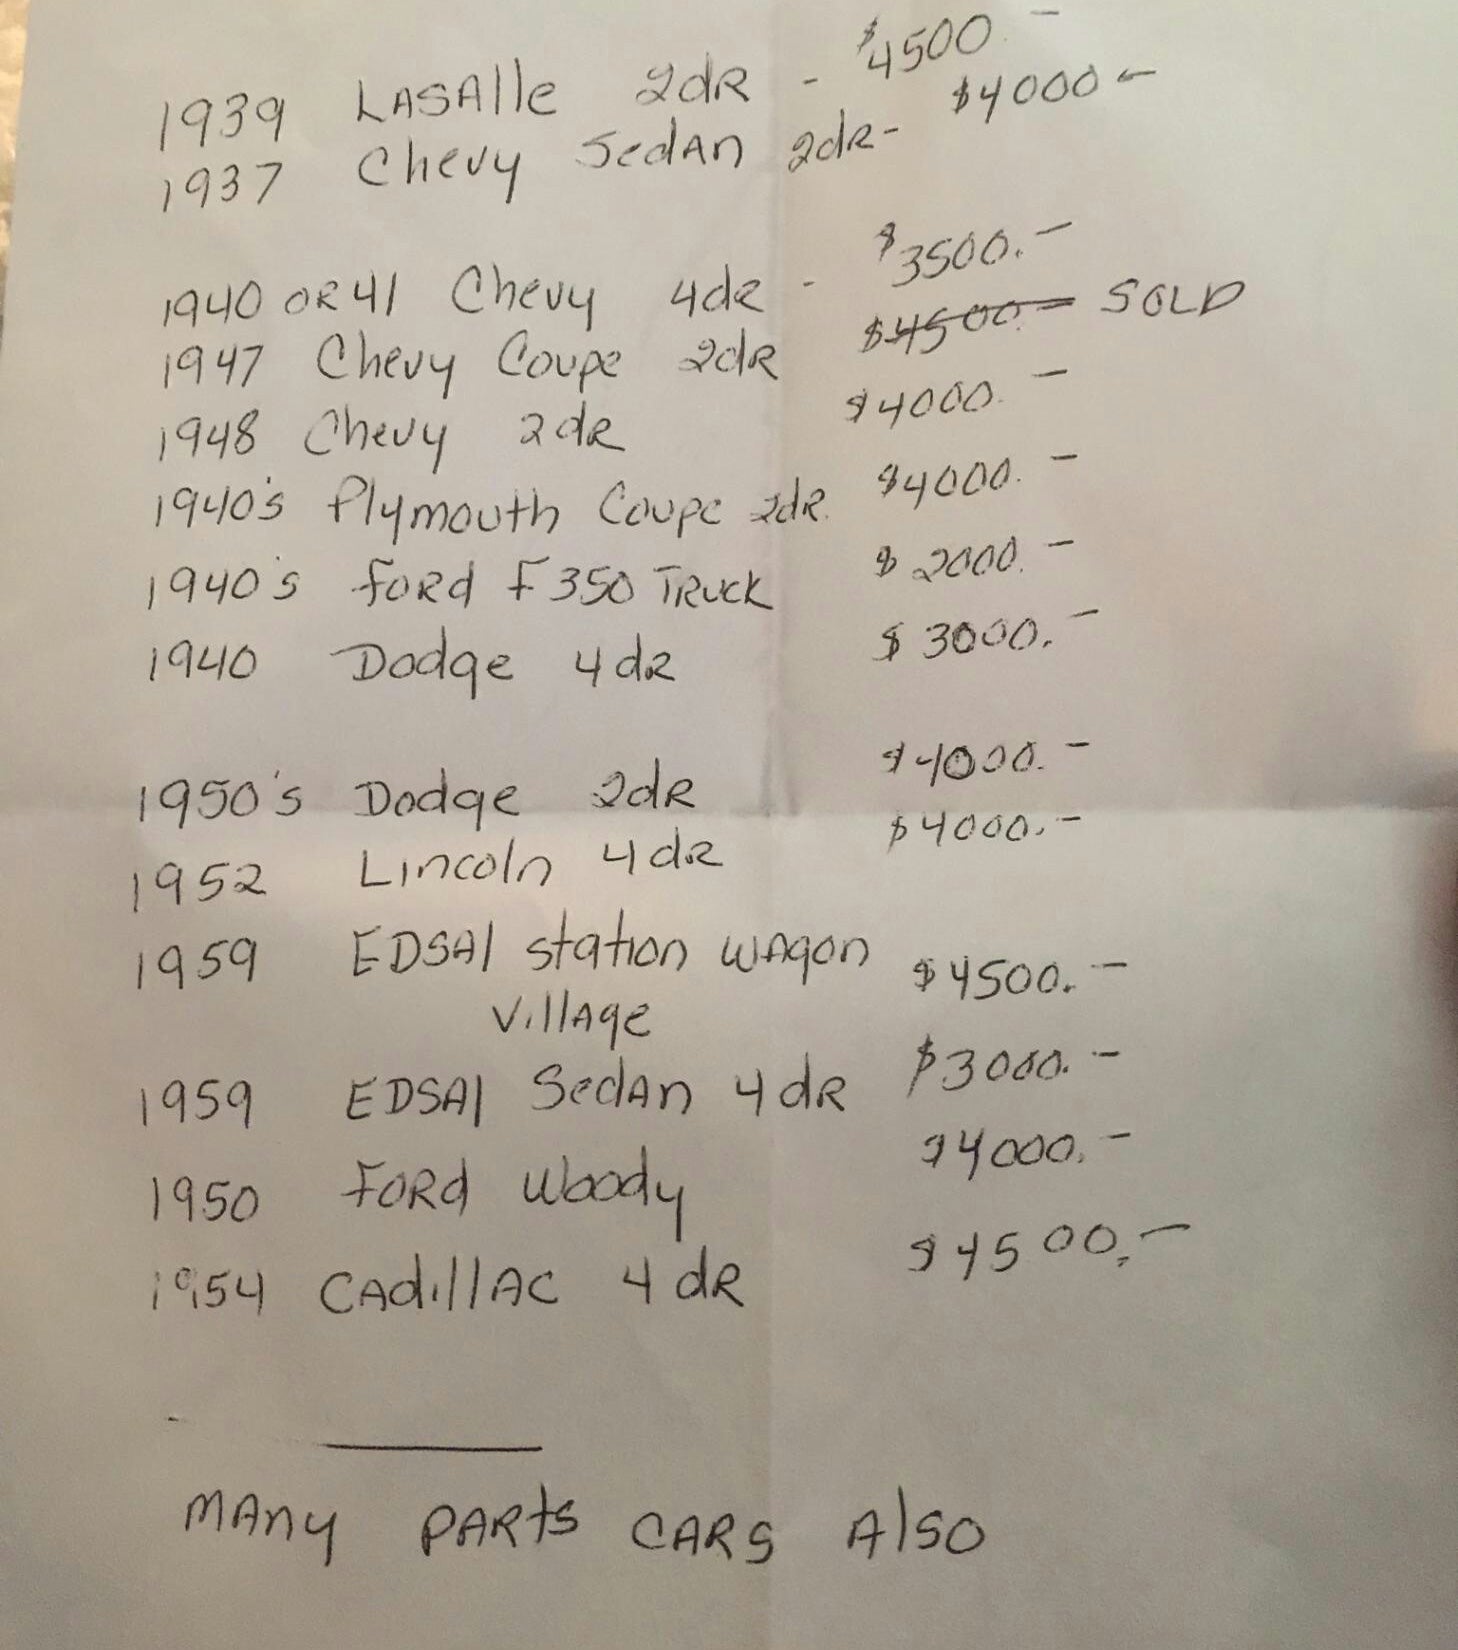 1939 LASAlle 2dR - $4500.-
1937 Chevy SedAn 2dR- $4000-
1940 OR 41 Chevy 4dR - $3500.-
1947 Chevy Coupe 2dR $4500.- SOLD
1948 Chevy 2dR $4000.-
1940's Plymouth Coupe 2dR. $4000.-
1940's Ford F350 TRUCK $2000.-
1940 Dodge 4dR $3000.-
1950's Dodge 2dR $4000.-
1952 Lincoln 4dR $4000.-
1959 EDSAl station wAgon $4500.-
VillAge
1959 EDSAl SedAn 4dR $3000.-
1950 FORd Woody $4000.-
1954 CAdillAC 4dR $4500.-
MAny PARts CARS Also